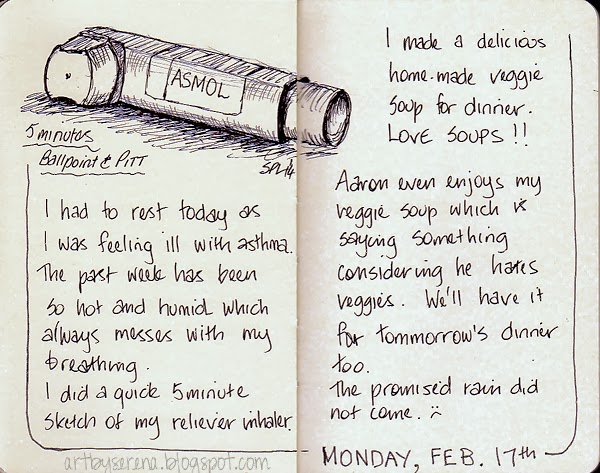 ASMOL
5 minutes
Ballpoint & PITT
SPL'14
I had to rest today as
I was feeling ill with asthma.
The past week has been
so hot and humid which
always messes with my
breathing.
I did a quick 5 minute
sketch of my reliever inhaler.
artbyserena.blogspot.com
I made a delicious
home-made veggie
soup for dinner.
LOVE SOUPS !!
Aaron even enjoys my
veggie soup which is
saying something
considering he hates
veggies. We'll have it
for tommorrow's dinner
too.
The promised rain did
not come. :(
MONDAY, FEB. 17th